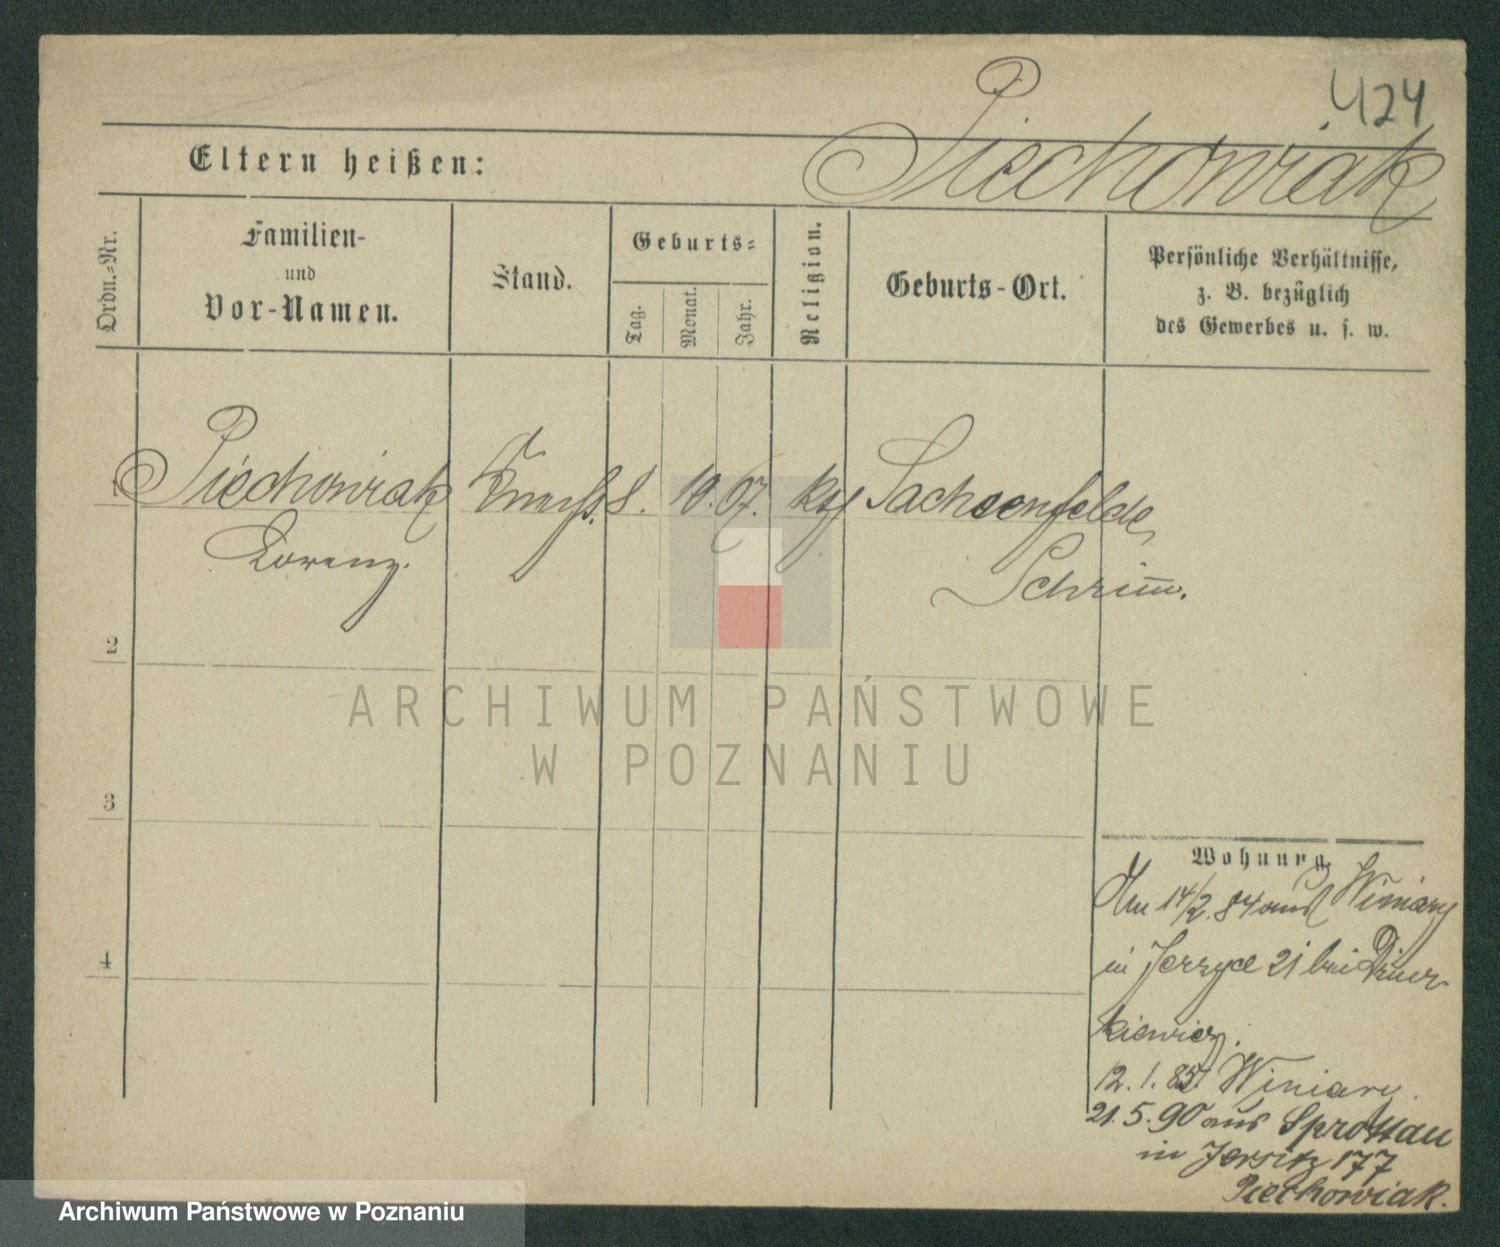 424
Piechowiak
Eltern heißen:
Ordn.=Nr.
Familien-
und
Vor-Namen.
Stand.
Geburts=
Tag.
Monat.
Jahr.
Religion.
Geburts-Ort.
Persönliche Verhältnisse,
z. B. bezüglich
des Gewerbes u. s. w.
1
Piechowiak
Lorenz.
Knecht. 8. 10. 67. kth Sachsenfelde,
Schrimm.
2
3
4
ARCHIWUM PAŃSTWOWE
W POZNANIU
Wohnung.
Am 14/2. 84 aus Winiary
in Jerzyce 21 bei
kiewicz.
12. 1. 85. Winiary.
21. 5. 90 aus Sprottau
in Jersitz 177
Piechowiak.
Archiwum Państwowe w Poznaniu